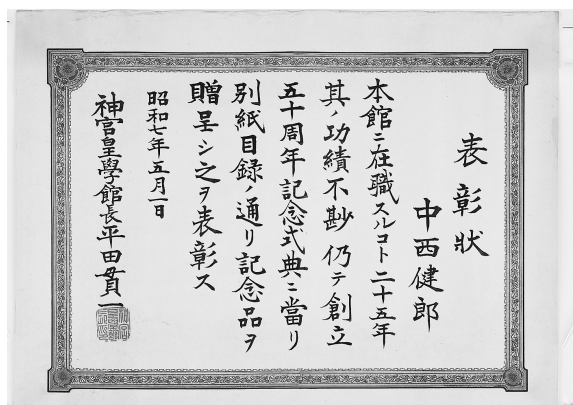 表彰状
中西健郎
本館ニ在職スルコト二十五年
其ノ功績不尠仍テ創立
五十周年記念式典ニ當リ
別紙目録ノ通リ記念品ヲ
贈呈シ之ヲ表彰ス
昭和七年五月一日
神宮皇學館長平田貫一